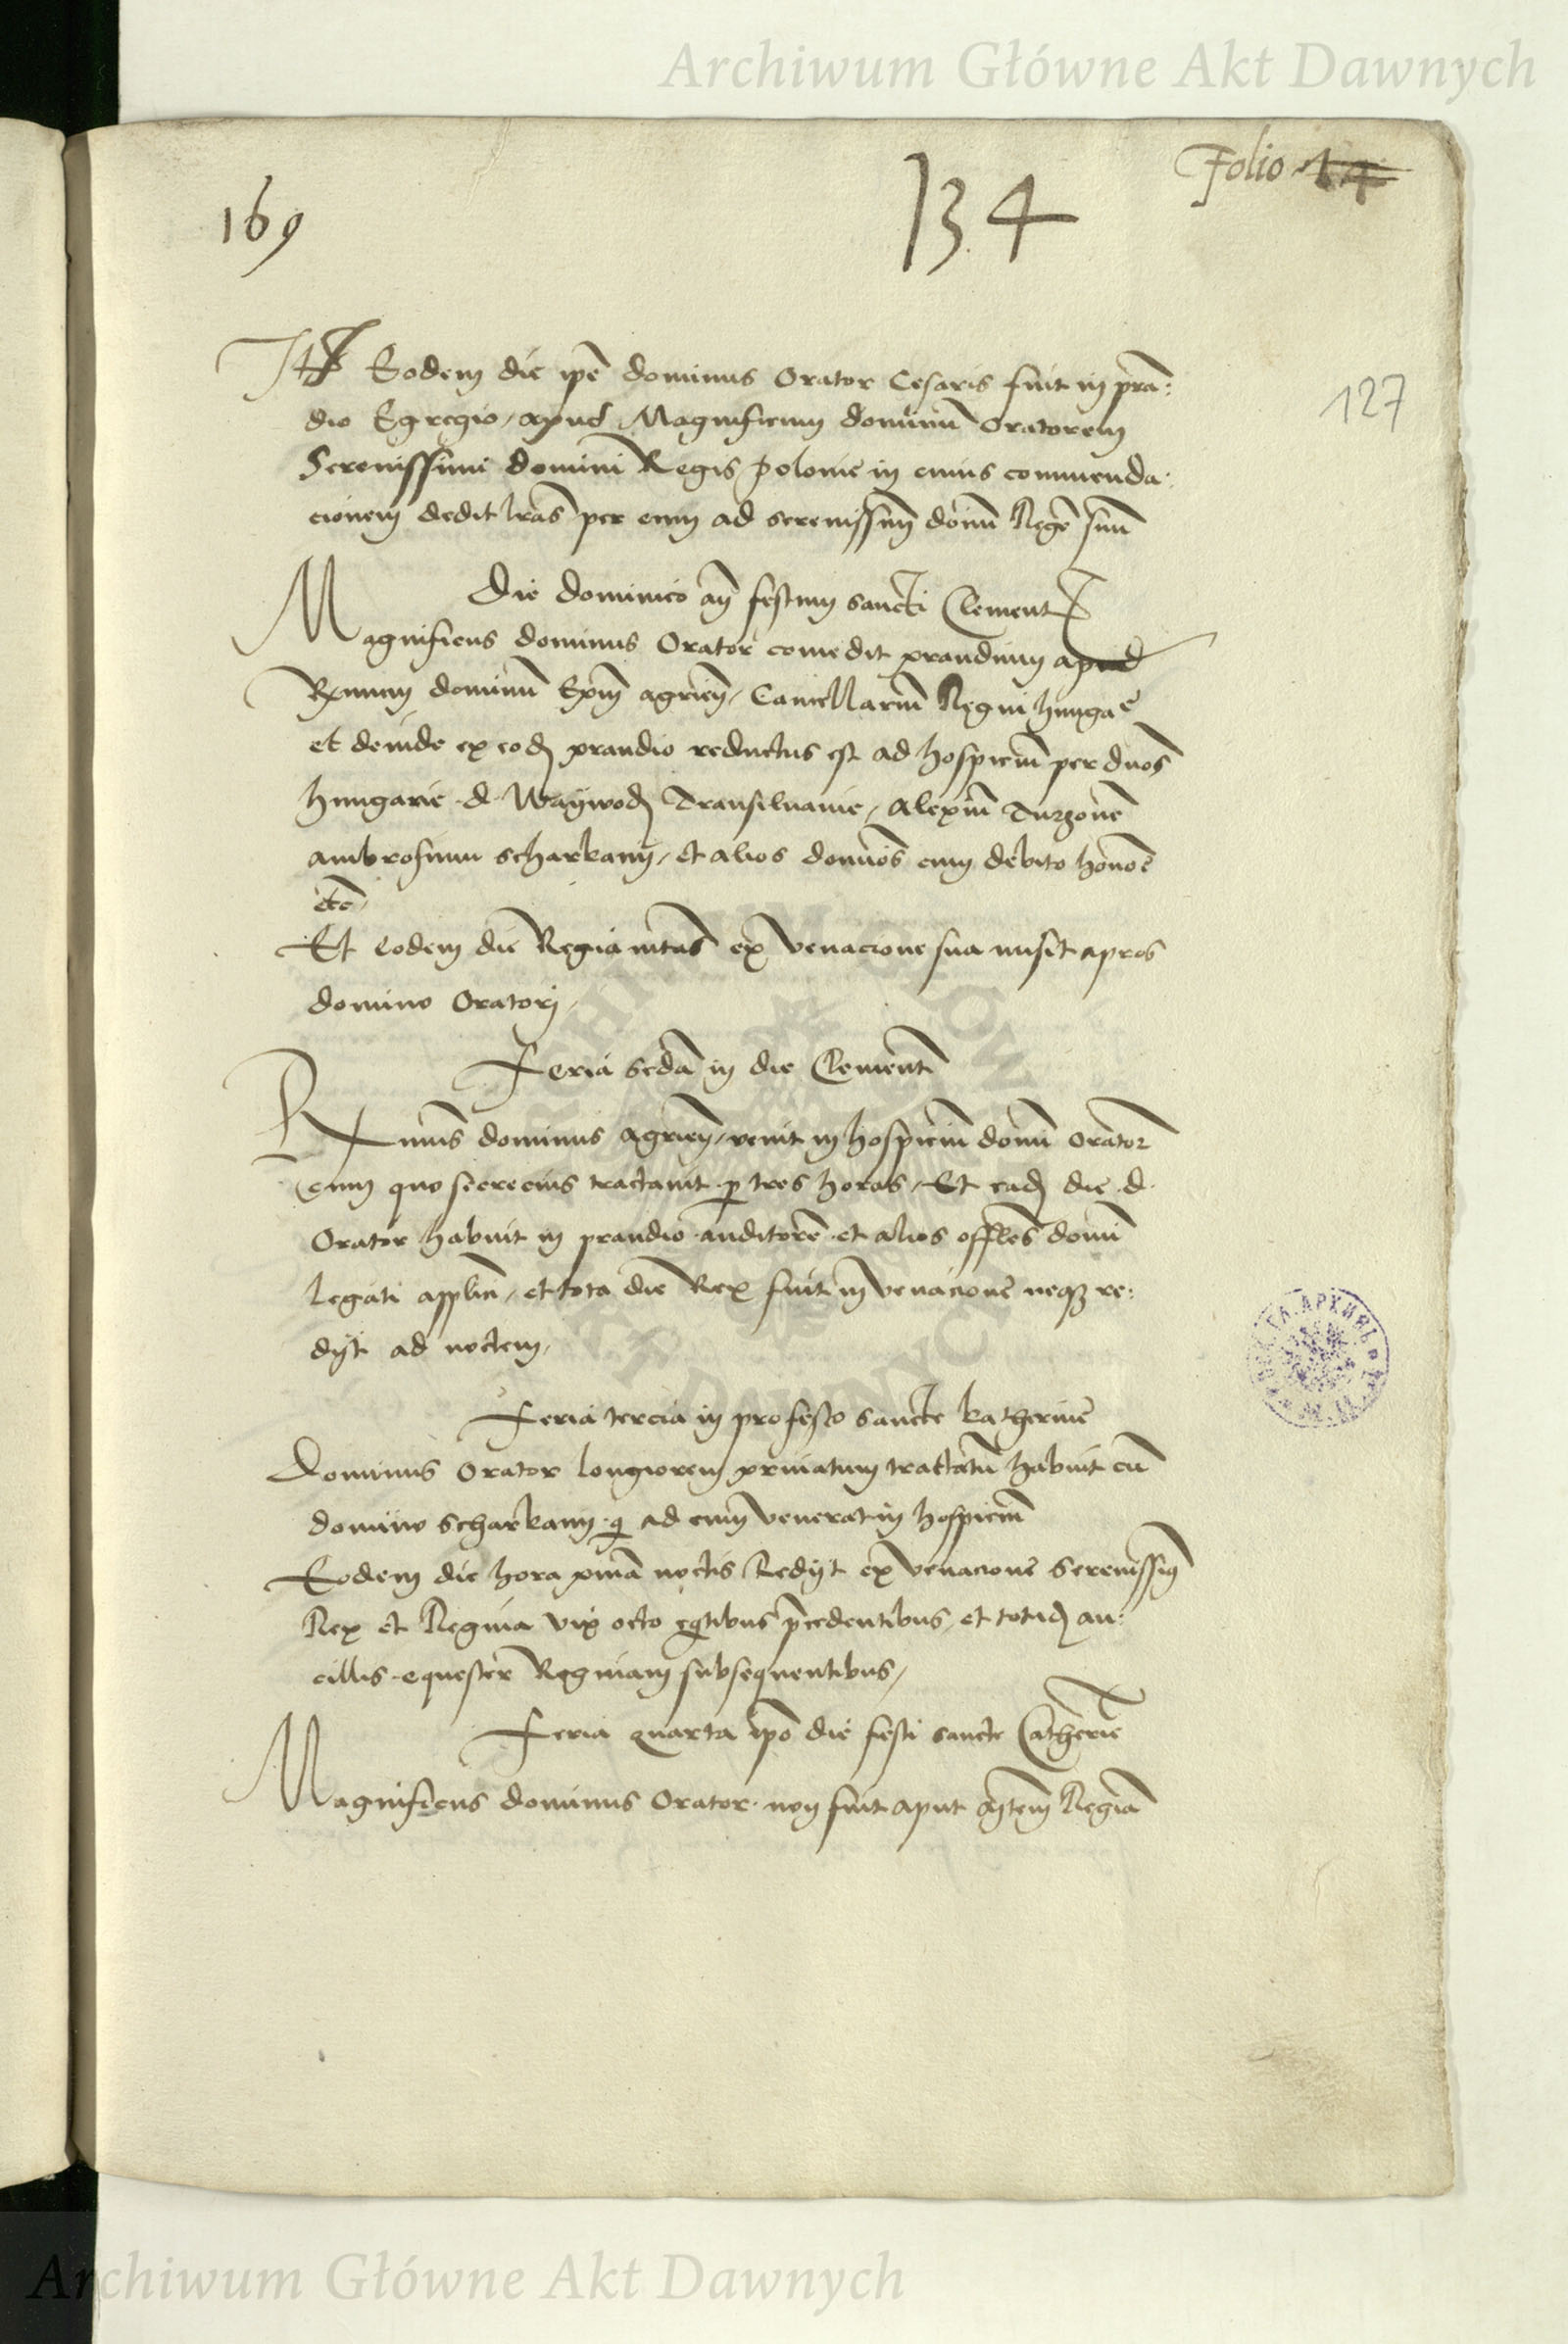 Archiwum Główne Akt Dawnych
Folio 14
169
134
127
Itē Eodem die ipē dominus Orator Cesaris fuit in pran:
dio Egregio, apud Magnificum dominū Oratorem
Serenissimi domini Regis Polonie in cuius commenda:
cionem dedit lrās per eum ad serenissimū domū Regē suū
Die dominico añ festum sancti Clement
Magnificus dominus Orator comedit prandium apud
Rxmum dominū Epm̄ agrieñ, Cancellariū Regni hungae
et deinde ex eod prandio reductus est ad hospiciū per duos
hungarie d Waywod Transiluanie, Alexiū Turzonē
ambrosium scharkany, et alios domōs cum debito honoē
etc̄
Et eodem die Regia mtās ex venacione sua misit apros
domino Oratorj
Feria secdā in die Clement
Rxmus dominus agrieñ, venit in hospiciū domī Orator
cum quo secrecius tractauit p tres horas, Et ead die d
Orator habuit in prandio auditorē et alios offles domī
legati applici, et tota die Rex fuit in venacionē neqz re:
dijt ad noctem,
Feria tercia in profesto sancte katherine
Dominus Orator longiorem priuatum tractatū habuit cū
domino scharkany q ad eum venerat in hospiciū
Eodem die hora prima noctis Redijt ex venacione Serenissim
Rex et Regina vix octo eqtibus pcedentibus, et totid an:
cillis equester Reginam subsequentibus,
Feria quarta ipō die festi sancte Catherie
Magnificus dominus Orator non fuit aput mtem Regiā
Archiwum Główne Akt Dawnych